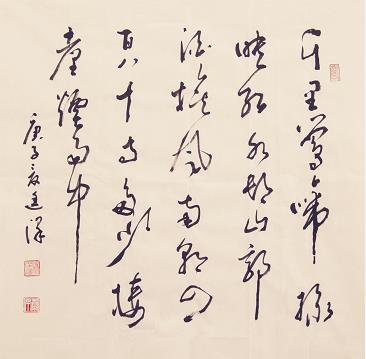 千里鶯啼綠
映紅水邨山郭
酒旗風南朝四
百八十寺多少樓
臺煙雨中
庚子